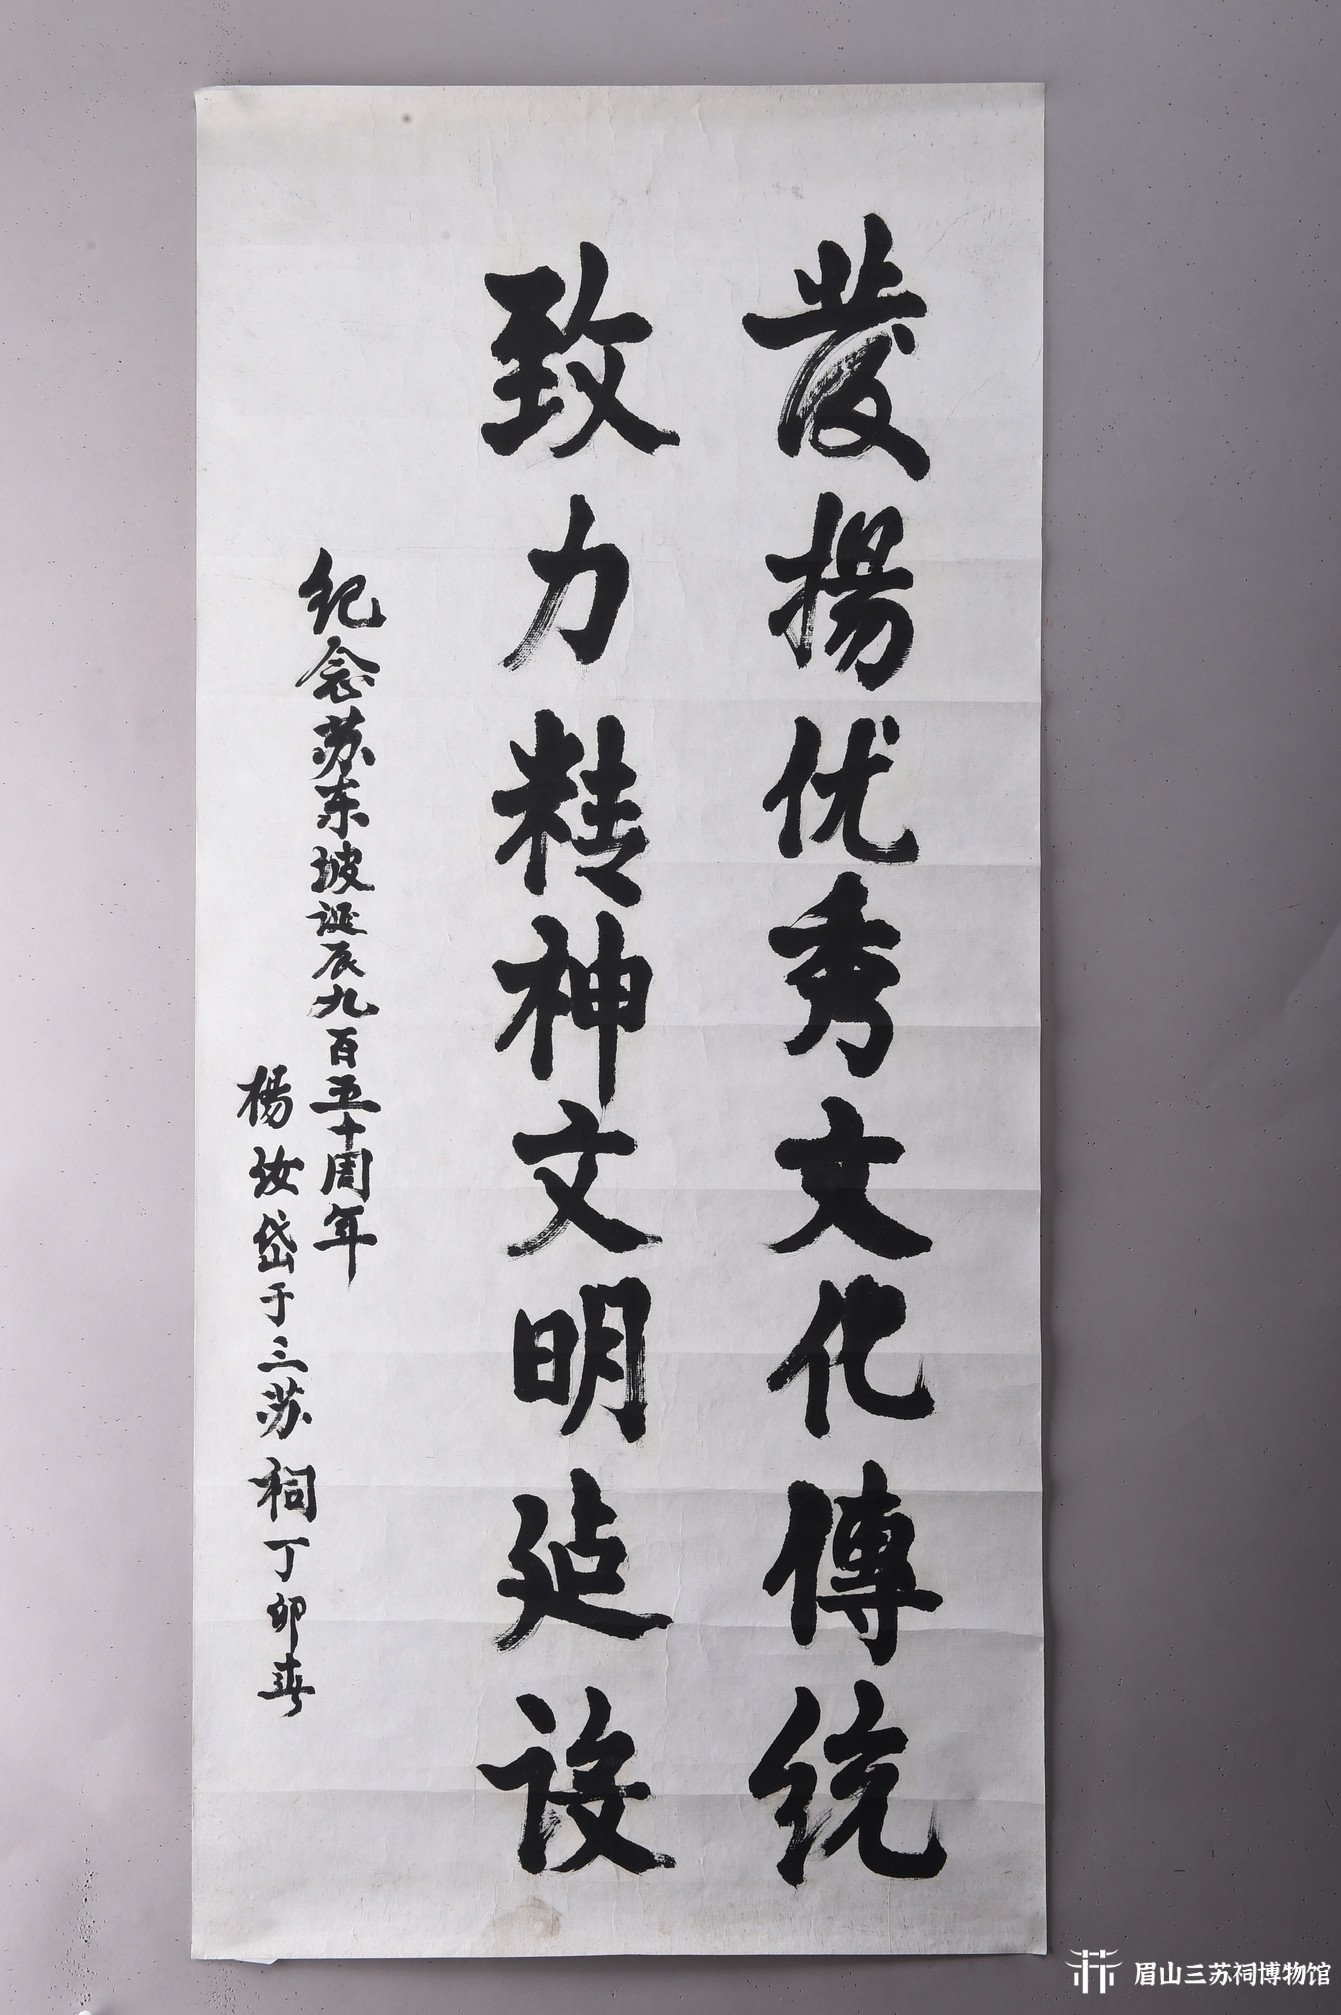 發揚优秀文化傳统
致力精神文明建设
纪念苏东坡诞辰九百五十周年
楊汝岱于三苏祠丁卯春
眉山三苏祠博物馆